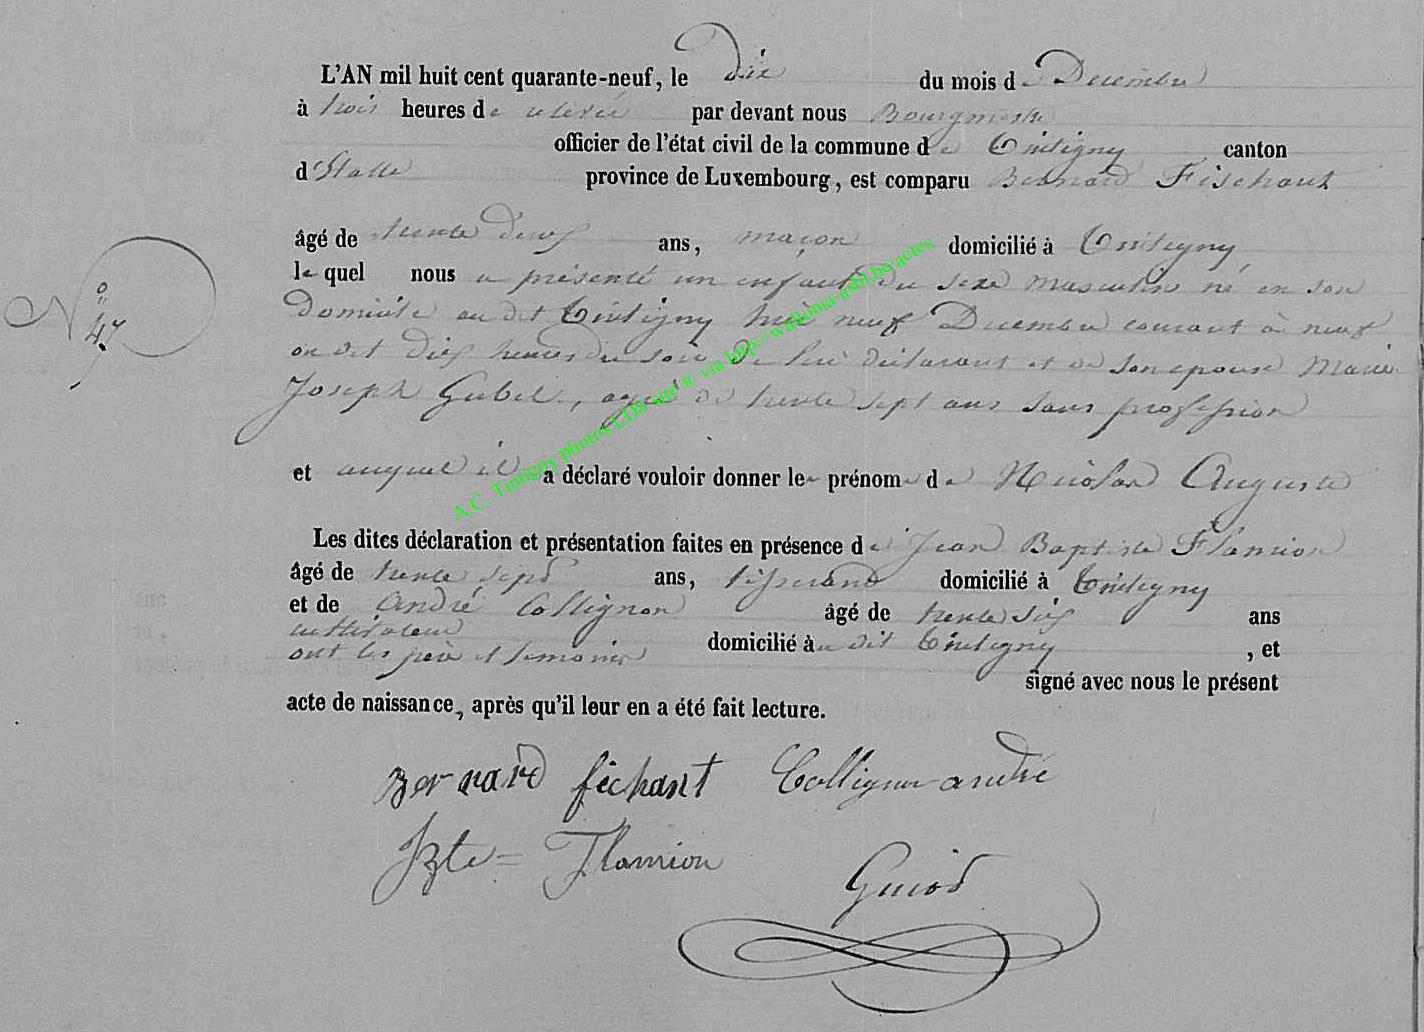 L'AN mil huit cent quarante-neuf, le dix du mois de Decembre
à trois heures de relevée par devant nous Bourgmestre
officier de l'état civil de la commune de Tintigny canton
d'Etalle province de Luxembourg, est comparu Bernard Fischant
âgé de trente deux ans, maçon domicilié à Tintigny
le quel nous a présenté un enfant du sexe masculin né en son
N° 47
Domicile au dit Tintigny hier neuf Decembre courant à neuf
ou dit dix heures du soir de lui déclarant et de son epouse Marie
Joseph Gubel, agée de trente sept ans sans profession
et auquel il a déclaré vouloir donner le prénom de Nicolas Auguste
Les dites déclaration et présentation faites en présence de Jean Baptiste Flamion
âgé de trente sept ans, tisserand domicilié à Tintigny
et de André Collignon âgé de trente six ans
cultivateur domicilié à dit Tintigny, et
ont les père et temoins signé avec nous le présent
acte de naissance, après qu'il leur en a été fait lecture.
Bernard fichant Collignon andré
JBte= Flamion
Guiot
A.C. Tintigny photos LDS site R via http://wallonia-asbl.be/actes